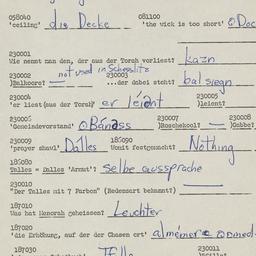 058040 081100
'ceiling' die Decke 'the wick is too short'
230001
Wie nennt man den, der aus der Torah vorliest? kazn
230002 not used in Scheßlitz 230003
]Balkore? — ...der dabei steht? balsiegn
230004 230005
'er liest (aus der Torah)' er leient ]leient?
230006 230007 230008
'Gemeindevorstand' ]Roschekool? — ]Gabbe?
230009 186090
'prayer shawl' Dalles Womit festgemacht? Nothing
186080
Talles = Dalles 'Armut'? selbe aussprache
230010
"Der Talles mit 7 Farben" (Redensart bekannt?) —
187010
Was hat Menorah geheissen? Leuchter
187020
'die Erhöhung, auf der der Chasen ort' almemere
187030 230011